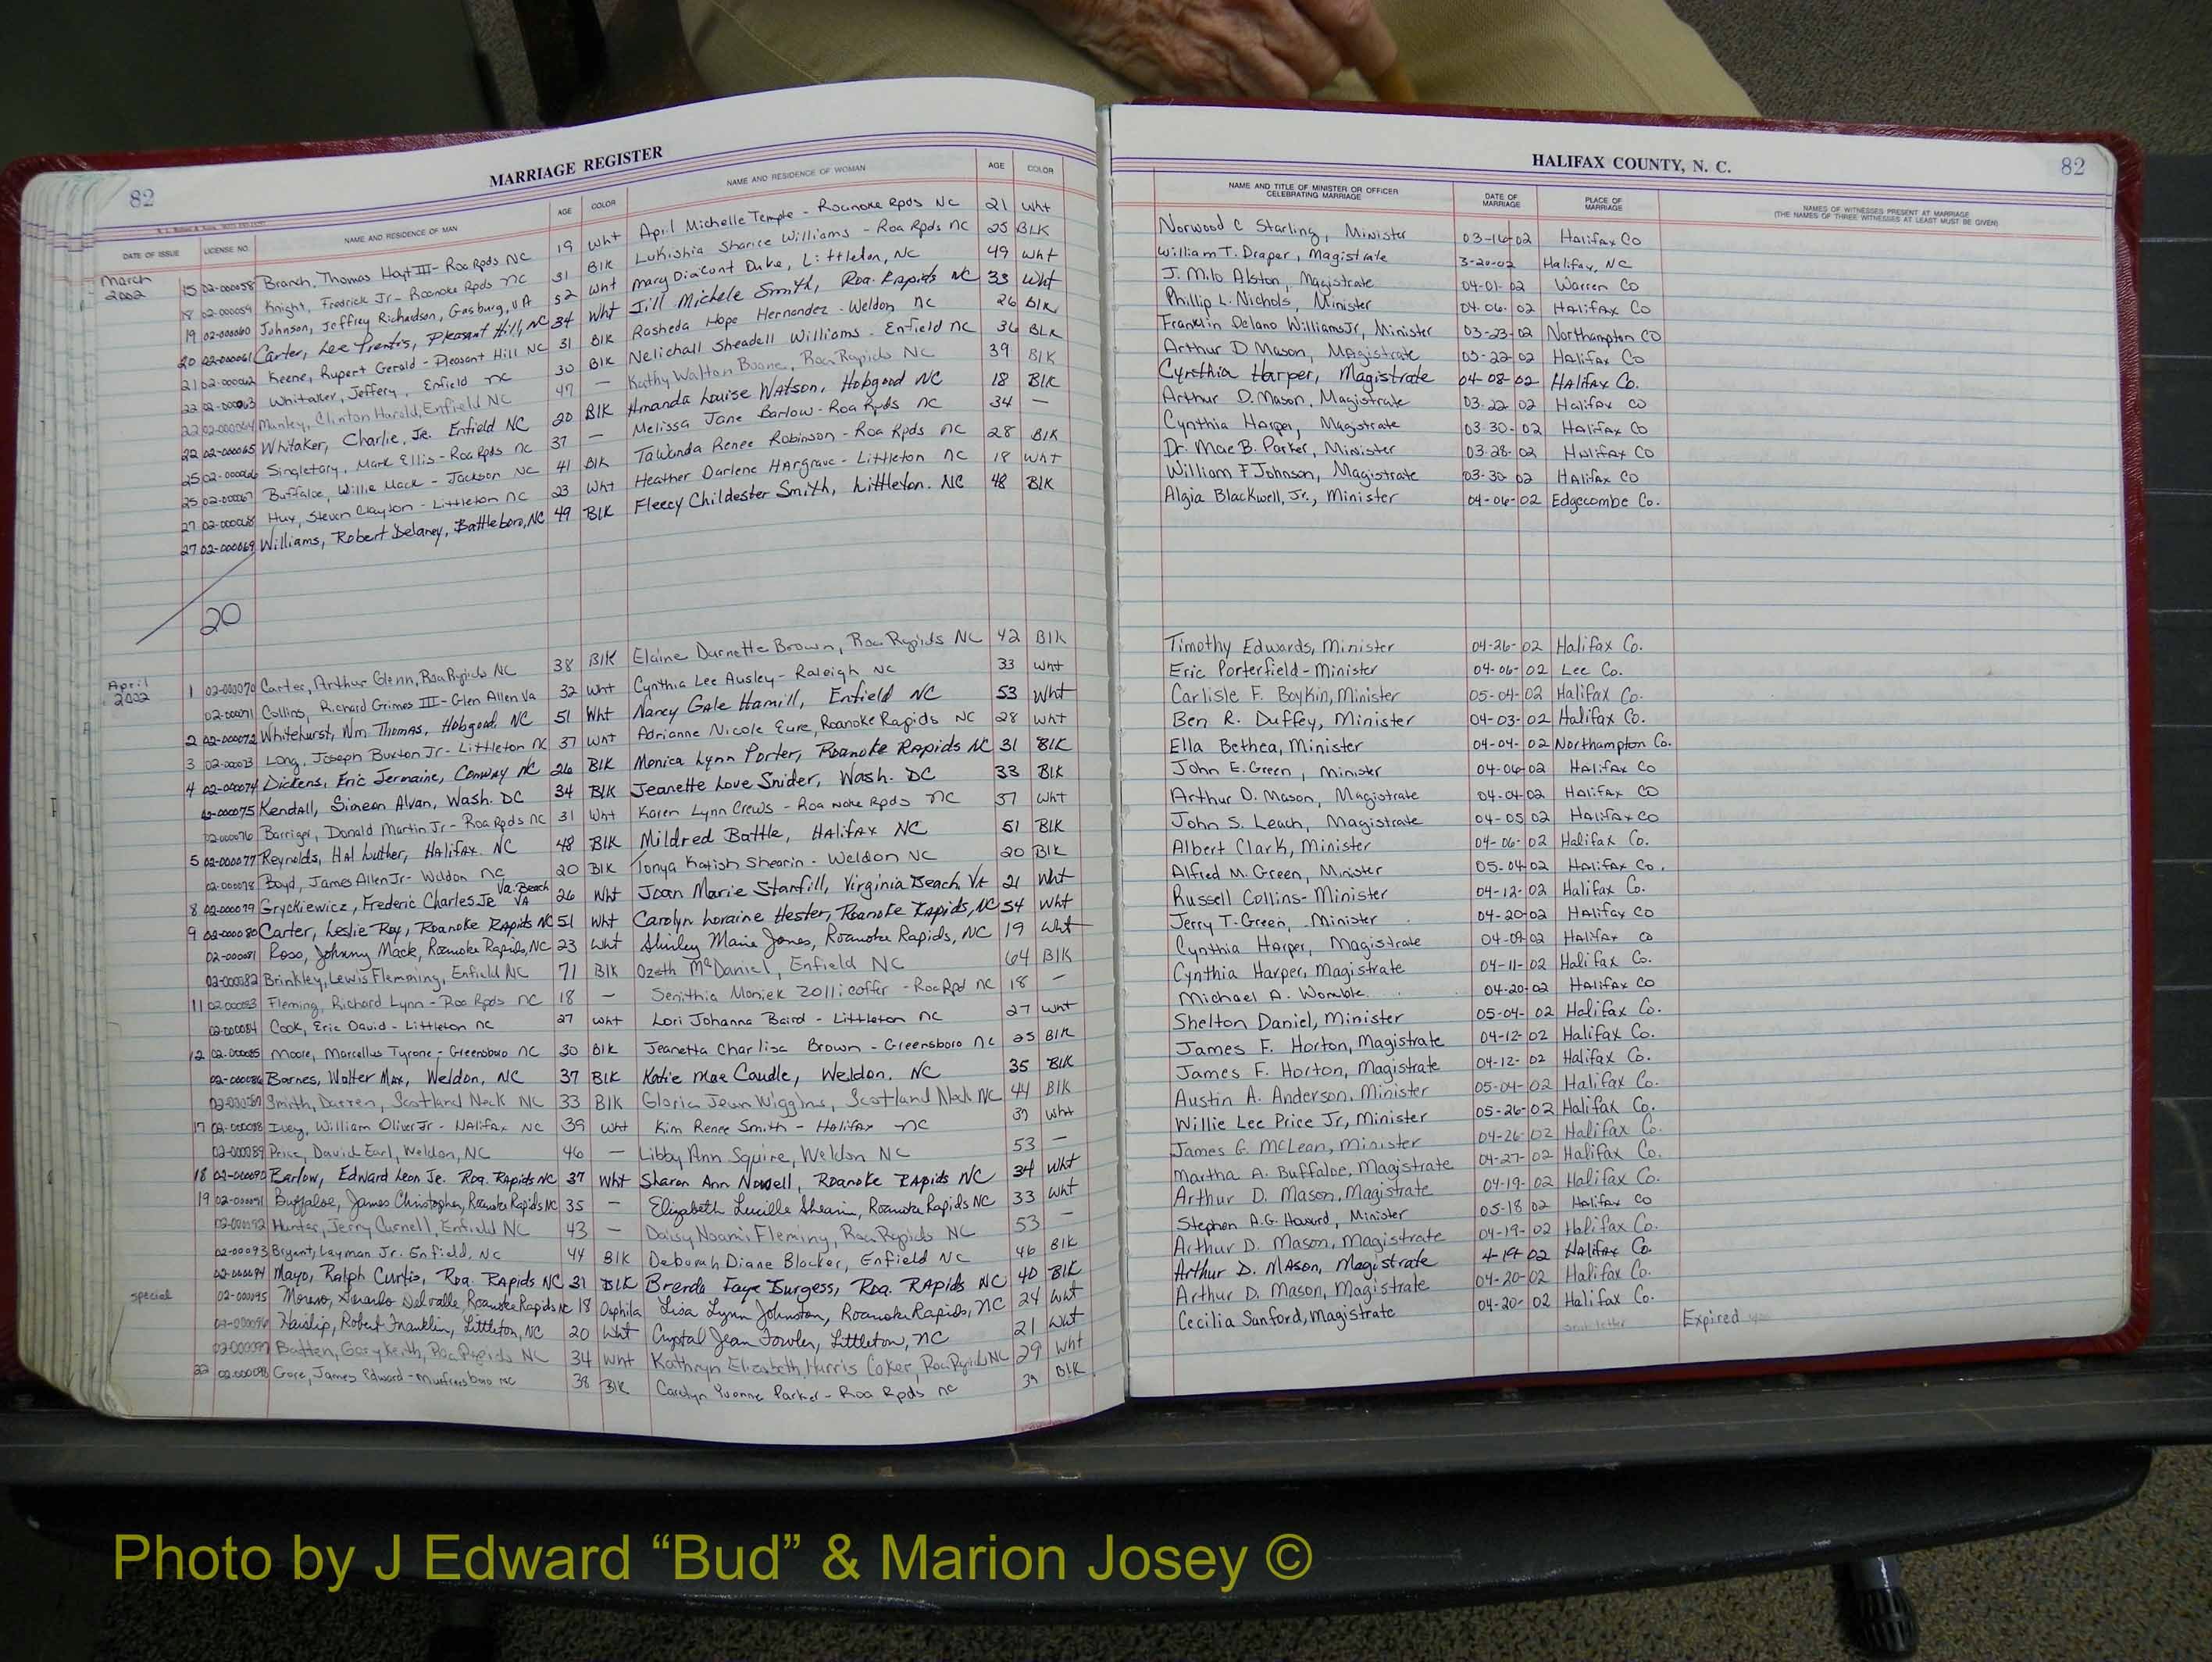 82
MARRIAGE REGISTER
DATE OF ISSUE LICENSE NO. NAME AND RESIDENCE OF MAN AGE COLOR NAME AND RESIDENCE OF WOMAN AGE COLOR
March 2002
15 02-000058 Branch, Thomas Hoyt III - Roa Rpds NC 19 Wht April Michelle Temple - Roanoke Rpds NC 21 Wht
18 02-000059 Knight, Fredrick Jr - Roanoke Rpds NC 31 Blk Lukishia Sharice Williams - Roa Rpds NC 25 BLK
19 02-000060 Johnson, Jeffrey Richardson, Gasburg, VA 52 Wht Mary Diacont Duke, Littleton, NC 49 Wht
20 02-000061 Carter, Lee Prentis, Pleasant Hill, NC 34 Wht Jill Michele Smith, Roa. Rapids NC 33 Wht
21 02-000062 Keene, Rupert Gerald - Pleasant Hill NC 31 Blk Rasheda Hope Hernandez - Weldon NC 26 Blk
22 02-000063 Whitaker, Jeffery, Enfield NC 30 Blk Nelichall Sheadell Williams - Enfield NC 36 BLK
22 02-000064 Manley, Clinton Harold, Enfield NC 47 — Kathy Walton Boone, Roa Rapids NC 39 Blk
22 02-000065 Whitaker, Charlie, Jr. Enfield NC 20 Blk Amanda Louise Watson, Hobgood NC 18 Blk
25 02-000066 Singletary, Mark Ellis - Roa Rpds NC 37 — Melissa Jane Barlow - Roa Rpds NC 34 —
25 02-000067 Buffaloe, Willie Mack - Jackson NC 41 Blk TaWanda Renee Robinson - Roa Rpds NC 28 Blk
27 02-000068 Hux, Steven Clayton - Littleton NC 23 Wht Heather Darlene Hargrave - Littleton NC 18 Wht
27 02-000069 Williams, Robert Delaney, Battleboro, NC 49 Blk Fleecy Childester Smith, Littleton, NC 48 Blk
20
April 2002
1 02-000070 Carter, Arthur Glenn, Roa Rapids NC 38 Blk Elaine Durnette Brown, Roa Rapids NC 42 Blk
02-000071 Collins, Richard Grimes III - Glen Allen Va 32 Wht Cynthia Lee Ausley - Raleigh NC 33 Wht
2 02-000072 Whitehurst, Wm. Thomas, Hobgood NC 51 Wht Nancy Gale Hamill, Enfield NC 53 Wht
3 02-000073 Long, Joseph Buxton Jr - Littleton NC 37 Wht Adrianne Nicole Eure, Roanoke Rapids NC 28 Wht
4 02-000074 Dickens, Eric Jermaine, Conway NC 26 Blk Monica Lynn Porter, Roanoke Rapids NC 31 Blk
02-000075 Kendall, Simeon Alvan, Wash. DC 34 Blk Jeanette Love Snider, Wash. DC 33 Blk
02-000076 Barriger, Donald Martin Jr - Roa Rpds NC 31 Wht Karen Lynn Crews - Roanoke Rpds NC 37 Wht
5 02-000077 Reynolds, Hal Luther, Halifax NC 48 Blk Mildred Battle, Halifax NC 51 Blk
02-000078 Boyd, James Allen Jr - Weldon NC 20 Blk Tonya Katish Shearin - Weldon NC 20 Blk
8 02-000079 Gryckiewicz, Frederic Charles Jr Va. Beach VA 26 Wht Joan Marie Stanfill, Virginia Beach, VA 21 Wht
9 02-000080 Carter, Leslie Ray, Roanoke Rapids NC 51 Wht Carolyn Loraine Hester, Roanoke Rapids, NC 54 Wht
02-000081 Ross, Johnny Mack, Roanoke Rapids, NC 23 Wht Shirley Marie Jones, Roanoke Rapids, NC 19 Wht
02-000082 Brinkley, Lewis Flemming, Enfield NC 71 Blk Ozeth McDaniel, Enfield NC 64 Blk
11 02-000083 Fleming, Richard Lynn - Roa Rpds NC 18 — Senithia Moniek Zollicoffer - Roa Rpd NC 18 —
02-000084 Cook, Eric David - Littleton NC 27 Wht Lori Johanna Baird - Littleton NC 27 Wht
12 02-000085 Moore, Marcellus Tyrone - Greensboro NC 30 Blk Jeanetta Charlisa Brown - Greensboro NC 25 Blk
02-000086 Barnes, Walter Max, Weldon, NC 37 Blk Katie Mae Caudle, Weldon, NC 35 Blk
02-000087 Smith, Darren, Scotland Neck NC 33 Blk Gloria Jean Wiggins, Scotland Neck NC 44 Blk
17 02-000088 Ivey, William Oliver Jr - Halifax NC 39 Wht Kim Renee Smith - Halifax NC 39 Wht
02-000089 Price, David Earl, Weldon, NC 46 — Libby Ann Squire, Weldon NC 53 —
18 02-000090 Barlow, Edward Leon Jr. Roa. Rapids NC 37 Wht Sharon Ann Nowell, Roanoke Rapids NC 34 Wht
19 02-000091 Buffaloe, James Christopher, Roanoke Rapids NC 35 — Elizabeth Lucille Shearin, Roanoke Rapids NC 33 Wht
02-000092 Hunter, Jerry Curnell, Enfield NC 43 — Daisy Naomi Fleming, Roa Rapids NC 53 —
02-00093 Bryant, Layman Jr. Enfield, NC 44 Blk Deborah Diane Blocker, Enfield NC 46 Blk
02-000094 Mayo, Ralph Curtis, Roa. Rapids NC 31 Blk Brenda Faye Burgess, Roa. Rapids NC 40 Blk
special 02-000095 Delvalle, Roanoke Rapids NC 18 Lisa Lynn Johnston, Roanoke Rapids, NC 24 Wht
02-000096 Robert Franklin, Littleton, NC 20 Wht Crystal Jean Fowler, Littleton, NC 21 Wht
02-000097 Batten, Gary Keith, Roa Rapids NC 34 Wht Kathryn Elizabeth Harris Coker, Roa Rapids NC 29 Wht
22 02-000098 Gore, James Edward - Murfreesboro NC 38 Blk Carolyn Yvonne Parker - Roa Rpds NC 39 Blk
HALIFAX COUNTY, N. C.
82
NAME AND TITLE OF MINISTER OR OFFICER CELEBRATING MARRIAGE DATE OF MARRIAGE PLACE OF MARRIAGE NAMES OF WITNESSES PRESENT AT MARRIAGE (THE NAMES OF THREE WITNESSES AT LEAST MUST BE GIVEN)
Norwood C Starling, Minister 03-16-02 Halifax Co
William T. Draper, Magistrate 3-20-02 Halifax, NC
J. Milo Alston, Magistrate 04-01-02 Warren Co
Phillip L. Nichols, Minister 04-06-02 Halifax Co
Franklin Delano Williams Jr, Minister 03-23-02 Northampton CO
Arthur D Mason, Magistrate 03-22-02 Halifax Co
Cynthia Harper, Magistrate 04-08-02 Halifax Co.
Arthur D. Mason, Magistrate 03-22-02 Halifax Co
Cynthia Harper, Magistrate 03-30-02 Halifax Co
Dr. Mae B. Parker, Minister 03-28-02 Halifax Co
William F Johnson, Magistrate 03-30-02 Halifax CO
Algia Blackwell, Jr., Minister 04-06-02 Edgecombe Co.
Timothy Edwards, Minister 04-26-02 Halifax Co.
Eric Porterfield - Minister 04-06-02 Lee Co.
Carlisle F. Boykin, Minister 05-04-02 Halifax Co.
Ben R. Duffey, Minister 04-03-02 Halifax Co.
Ella Bethea, Minister 04-04-02 Northampton Co.
John E. Green, Minister 04-06-02 Halifax Co
Arthur D. Mason, Magistrate 04-04-02 Halifax CO
John S. Leach, Magistrate 04-05-02 Halifax CO
Albert Clark, Minister 04-06-02 Halifax Co.
Alfred M. Green, Minister 05-04-02 Halifax Co.
Russell Collins - Minister 04-12-02 Halifax Co.
Jerry T. Green, Minister 04-20-02 Halifax Co
Cynthia Harper, Magistrate 04-09-02 Halifax Co
Cynthia Harper, Magistrate 04-11-02 Halifax Co.
Michael A. Womble 04-20-02 Halifax CO
Shelton Daniel, Minister 05-04-02 Halifax Co.
James F. Horton, Magistrate 04-12-02 Halifax Co.
James F. Horton, Magistrate 04-12-02 Halifax Co.
Austin A. Anderson, Minister 05-04-02 Halifax Co.
Willie Lee Price Jr, Minister 05-26-02 Halifax Co.
James G. McLean, Minister 04-26-02 Halifax Co.
Martha A. Buffaloe, Magistrate 04-27-02 Halifax Co.
Arthur D. Mason, Magistrate 04-19-02 Halifax Co.
Stephen A.G. Howard, Minister 05-18-02 Halifax Co
Arthur D. Mason, Magistrate 04-19-02 Halifax Co.
Arthur D. Mason, Magistrate 4-19-02 Halifax Co.
Arthur D. Mason, Magistrate 04-20-02 Halifax Co.
Cecilia Sanford, Magistrate 04-20-02 Halifax Co.
sent letter Expired
Photo by J Edward “Bud” & Marion Josey ©